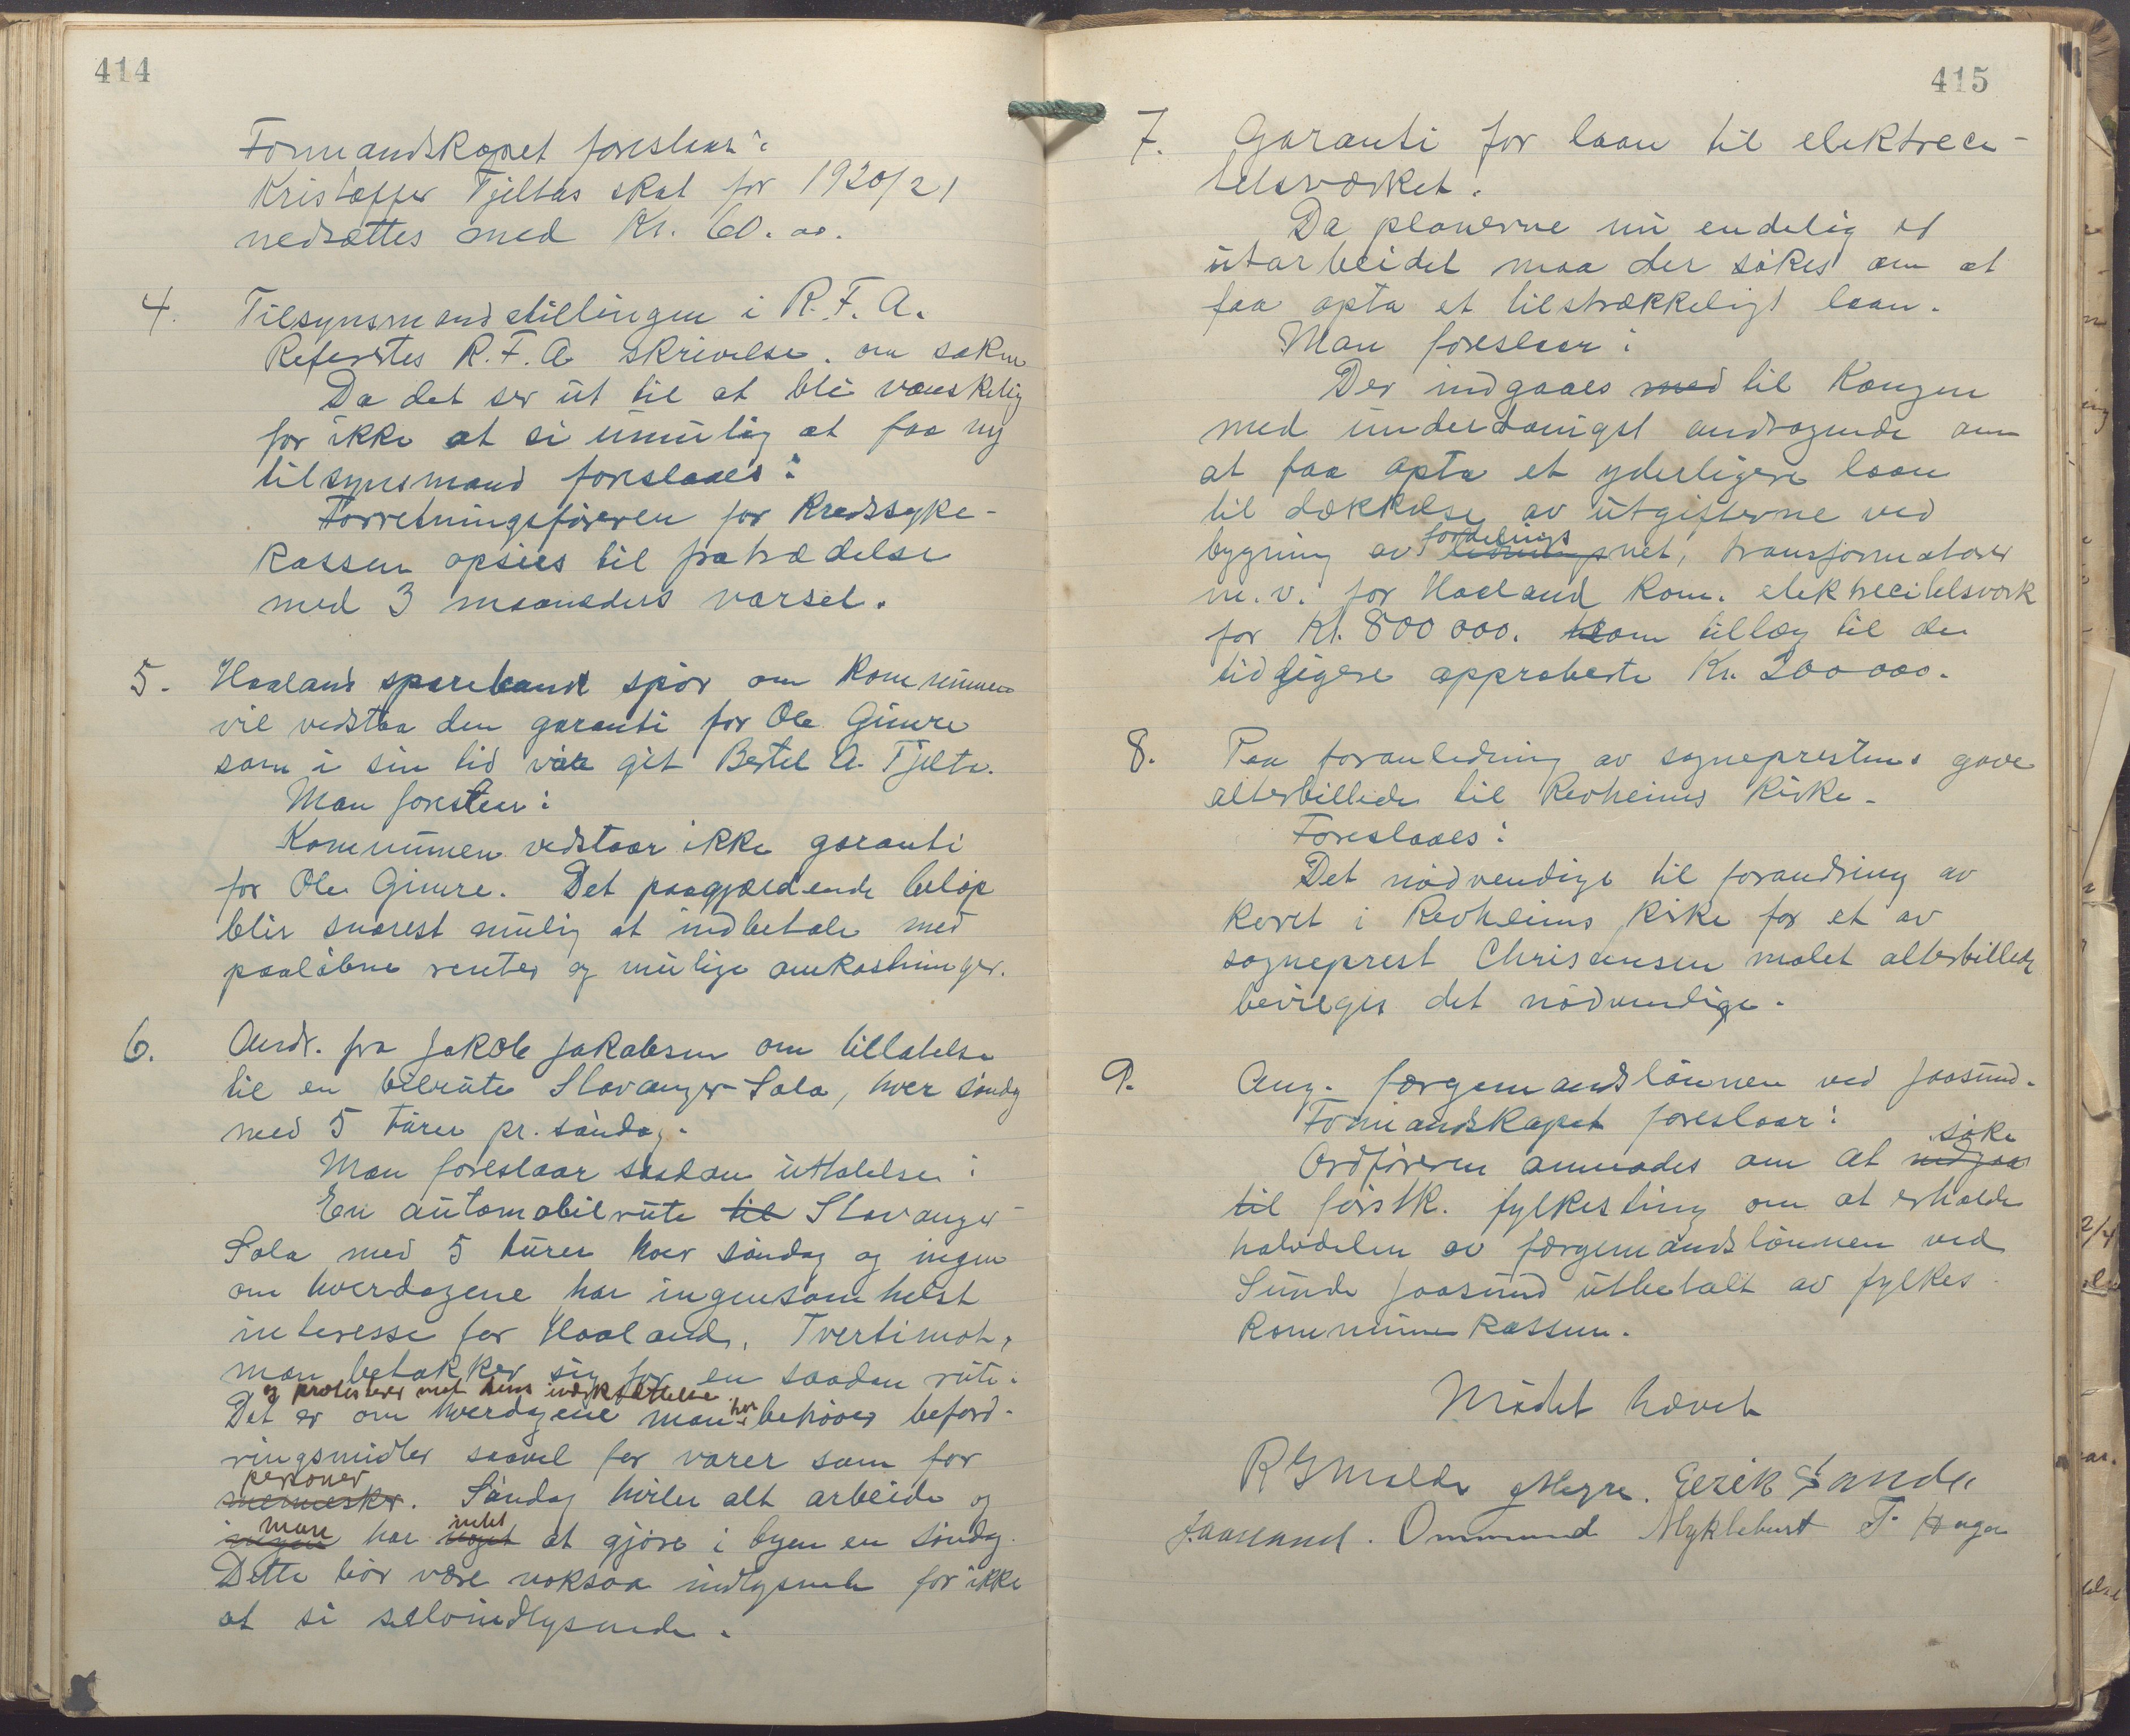 414
Formandskapet foreslaar:
Kristoffer Tjeltas skat for 1920/21
nedsættes med Kr. 60.00.
4. Tilsynsmandstillingen i R. F. A.
Refertes R. F. A skrivelse. om saken
Da det ser ut til at bli vanskelig
for ikke at si umulig at faa ny
tilsynsmand foreslaaes:
Forretningsføreren for Kredssyke-
kassen opsies til fratrædelse
med 3 maaneders varsel.
5. Haaland sparebank spør om kommunen
vil vedstaa den garanti for Ole Gimre
som i sin tid var git Bertel A. Tjelta.
Man foreslaar:
Kommunen vedstaar ikke garanti
for Ole Gimre. Det paagjældende beløp
blir snarest mulig at indbetale med
paaløbne renter og mulige omkostninger.
6. Andr. fra Jakob Jakobsen om tillatelse
til en bilrute Stavanger-Sola, hver søndag
med 5 turer pr. søndag.
Man foreslaar saadan uttalelse:
En automobilrute til Stavanger-
Sola med 5 turer hver søndag og ingen
om hverdagene har ingensomhelst
interesse for Haaland. Tvertimot,
man betakker sig for en saadan rute.
og protesterer mot dens iverksættelse
Det er om hverdagene man her behøver beford-
ringsmidler saavel for varer som for
personer
mennesker. Søndag hviler alt arbeide og
man intet
ingen har noget at gjøre i byen en søndag.
Dette bør være noksaa indlysende for ikke
at si selvindlysende.
415
7. Garanti for laan til elektreci-
tetsverket.
Da planerne nu endelig er
utarbeidet maa der søkes om at
faa opta et tilstrækkeligt laan.
Man foreslaar:
Der indgaaes med til Kongen
med underdanigst andragende om
at faa opta et yderligere laan
til dækkelse av utgifterne ved
fordelings
bygning av ledningsnet, transformatorer
m. v. for Haaland kom. elektrecitetsverk
for Kr. 800 000. som tillæg til de
tidligere approberte Kr. 200 000.
8. Paa foranledning av sogneprestens gave
alterbillede til Revheims kirke.
Foreslaaes:
Det nødvendige til forandring av
koret i Revheims kirke for et av
sogneprest Christensen malet alterbillede
bevilges det nødvendige.
9. Ang. færgemandslønnen ved Jaasund.
Formandskapet foreslaar:
søke
Ordføreren anmodes om at indgaa
til førstk. fylkesting om at erholde
halvdelen av færgemandslønnen ved
Sunde Jaasund utbetalt av fylkes
kommunekassen.
Mødet hævet
R G Malde Meyre. Eerik Sande
J. Aasland. Ommund Myklebust T. Haga